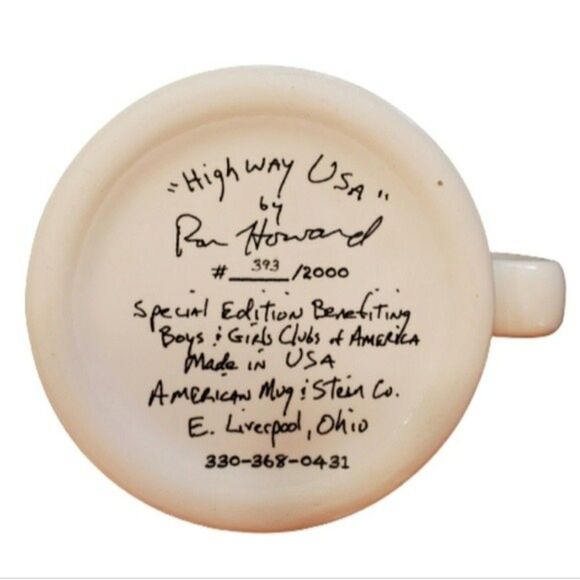 "HighwAy USA"
by
Ron Howard
# 393 /2000
Special Edition Benefiting
Boys & Girls Clubs of AMERICA
Made in USA
AMERICAN Mug & Stein Co.
E. Liverpool, Ohio
330-368-0431